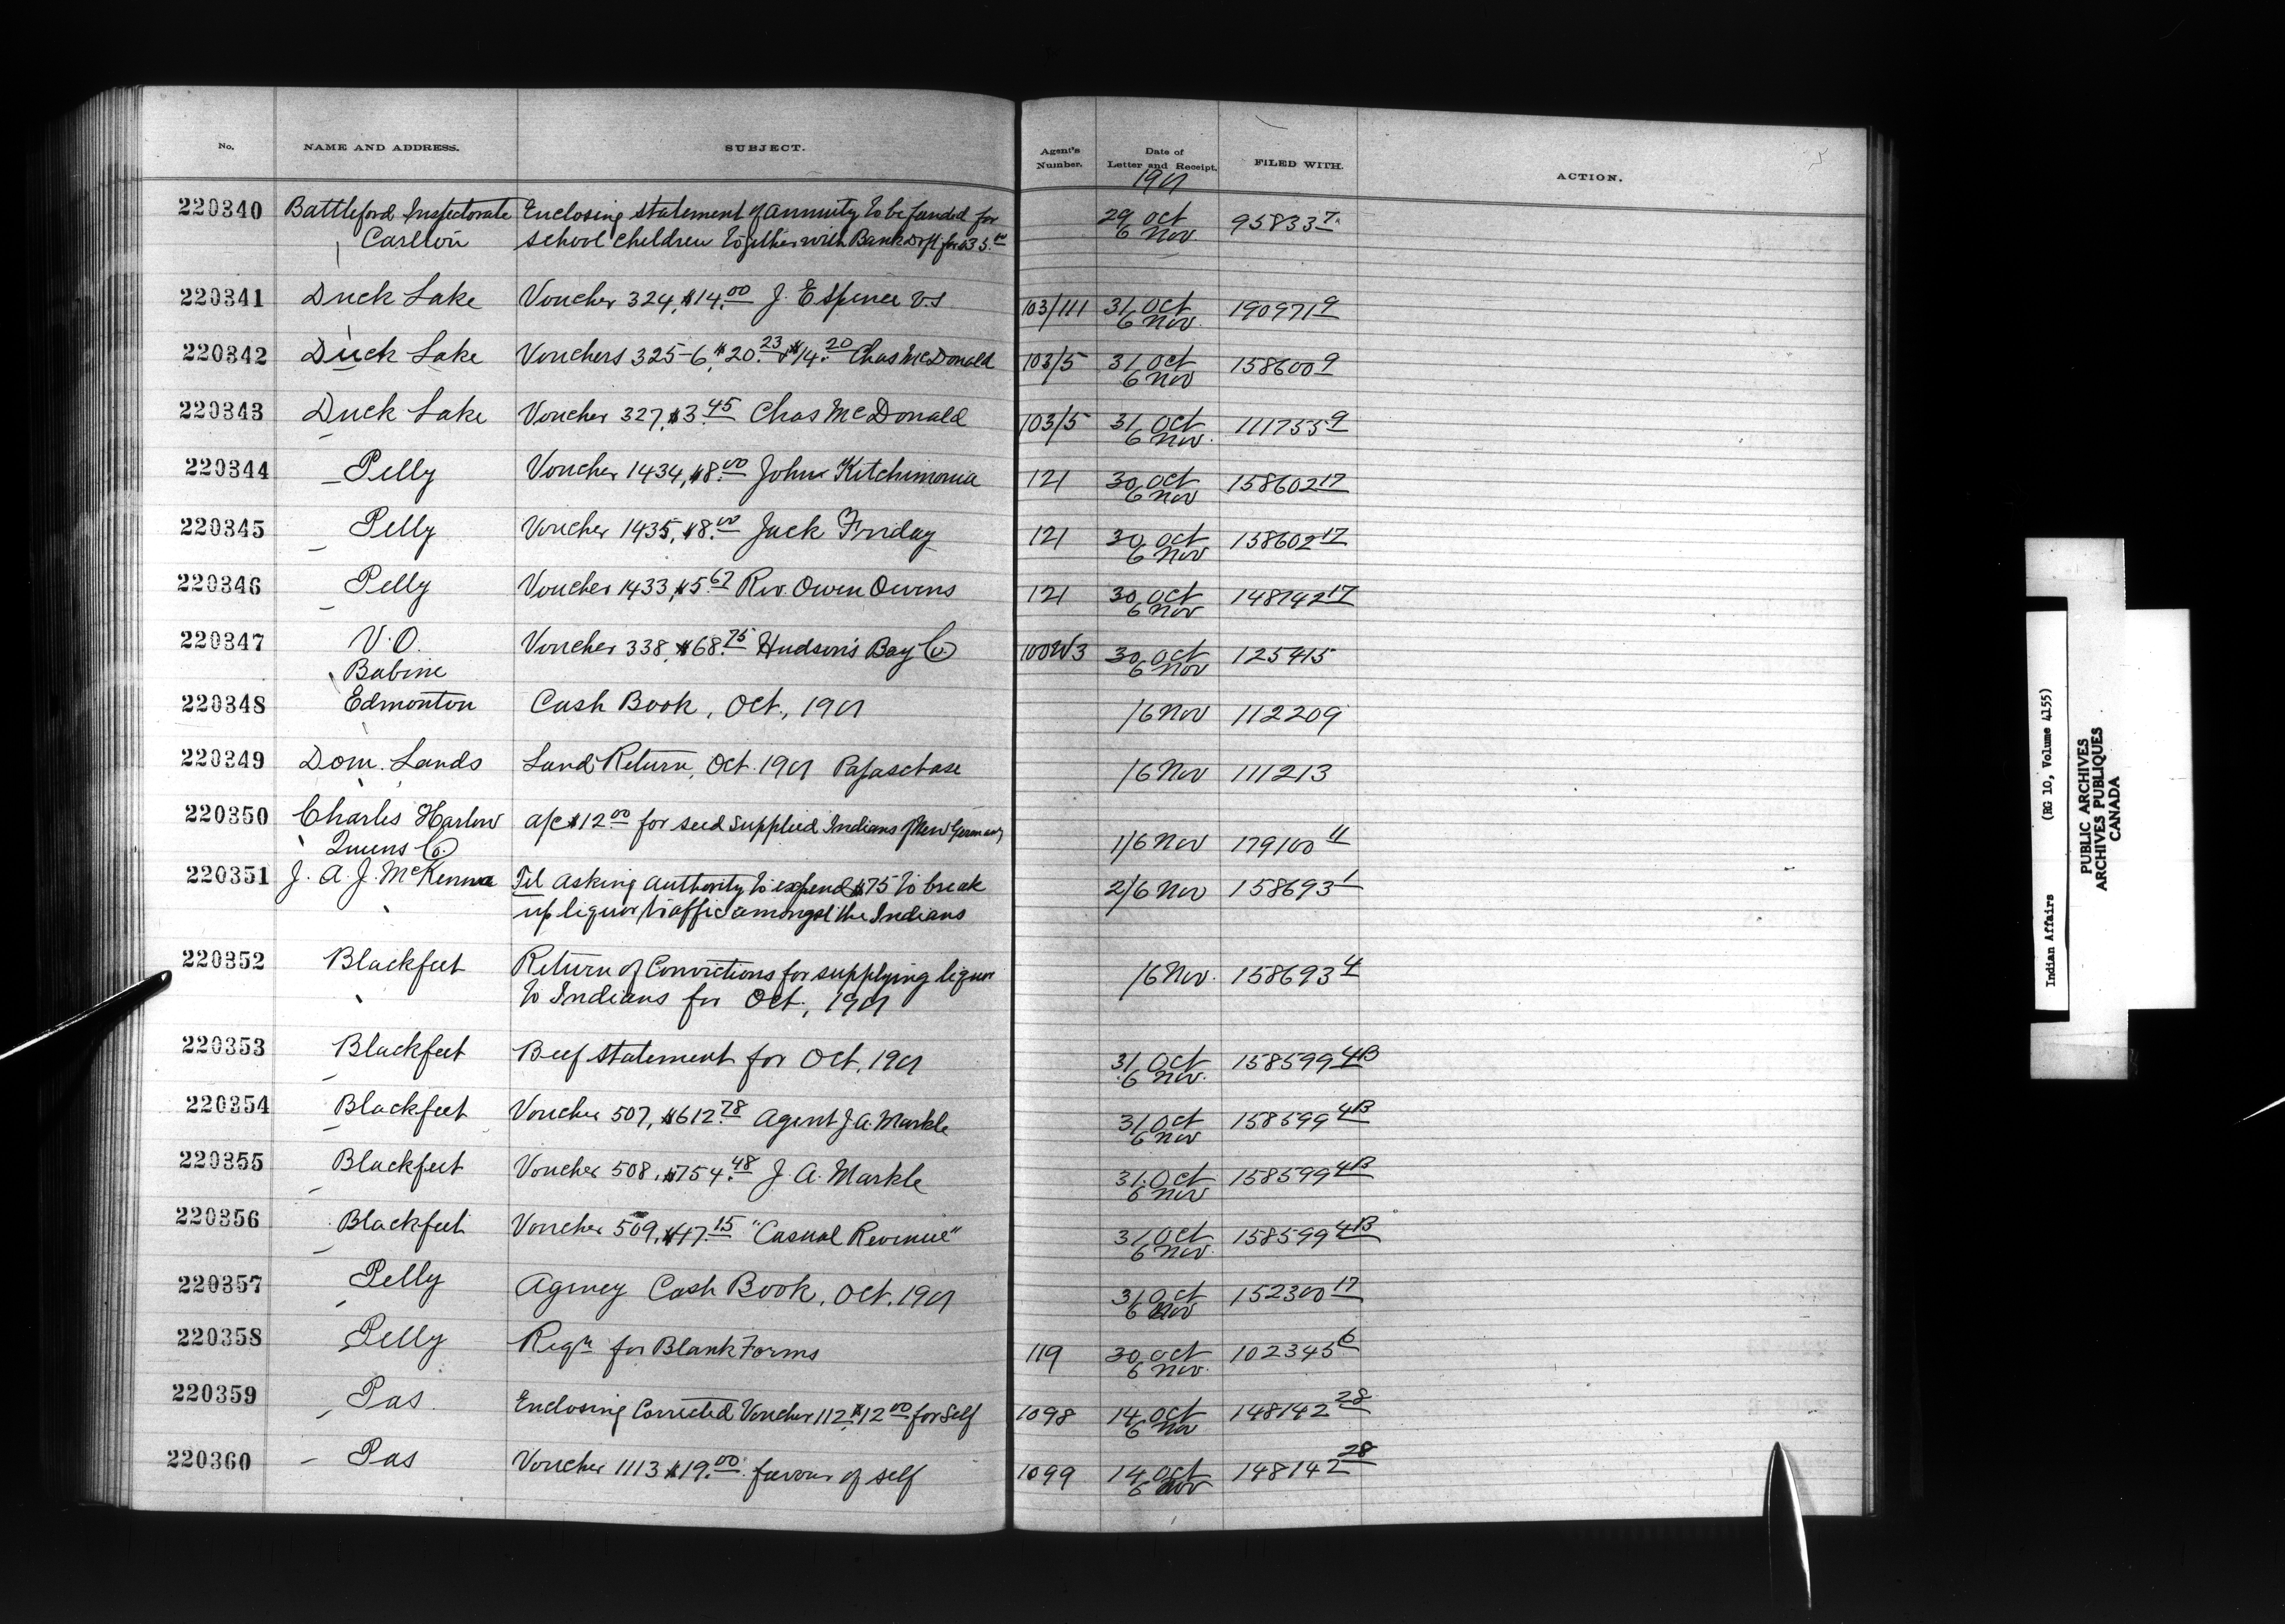 No. NAME AND ADDRESS. SUBJECT. Agent's Number. Date of Letter and Receipt. FILED WITH. ACTION.
1901
220340 Battleford Inspectorate Enclosing statement of annuity to be funded for 29 Oct 95833 7
Carlton school children together with Bank Dft for 6 Nov.
220341 Duck Lake Voucher 324, $14.00 J. E Spence V.S 103/111 31 Oct 190971 9
6 Nov.
220342 Duck Lake Vouchers 325-6, $20.23 & $14.20 Chas McDonald 103/5 31 Oct 158600 9
6 Nov
220343 Duck Lake Voucher 327, $3.45 Chas McDonald 103/5 31 Oct 111755 9
6 Nov.
220344 Pelly Voucher 1434, $8.00 John Kitchimonia 121 30 Oct 158602 17
6 Nov
220345 Pelly Voucher 1435, $8.00 Jack Friday 121 30 Oct 158602 17
6 Nov
220346 Pelly Voucher 1433, $5.67 Rev. Owen Owens 121 30 Oct 148142 17
6 Nov
220347 V.O. Voucher 338, $68.75 Hudson's Bay Co. 100W3 30 Oct 125415
Babine 6 Nov
220348 Edmonton Cash Book, Oct., 1901 /6 Nov 112209
220349 Dom. Lands Land Return, Oct. 1901 Papaschase /6 Nov 111213
220350 Charles Harlow a/c $12.00 for seed supplied Indians New Germany 1/6 Nov 179100 11
Queens Co.
220351 J. A. J. McKenna Tel asking authority to expend $75 to break 2/6 Nov 158693 1
up liquor traffic amongst the Indians
220352 Blackfeet Return of Convictions for supplying liquor /6 Nov. 158693 4
to Indians for Oct., 1901
220353 Blackfeet Beef statement for Oct. 1901 31 Oct 158599 4B
6 Nov.
220354 Blackfeet Voucher 507, $612.78 Agent J. A. Markle 31 Oct 158599 4B
6 Nov
220355 Blackfeet Voucher 508, $754.48 J. A. Markle 31 Oct 158599 4B
6 Nov
220356 Blackfeet Voucher 509, $47.15 "Casual Revenue" 31 Oct 158599 4B
6 Nov.
220357 Pelly Agency Cash Book, Oct. 1901 31 Oct 152300 17
6 Nov
220358 Pelly Reqn for Blank Forms 119 30 Oct 102345 6
6 Nov.
220359 Pas. Enclosing Corrected Voucher 112, $12.00 for Self 1098 14 Oct 148142 28
6 Nov
220360 Pas Voucher 1113 $19.00. favour of self 1099 14 Oct 148142 28
6 Nov
Indian Affairs (RG 10, Volume 4155)
PUBLIC ARCHIVES
ARCHIVES PUBLIQUES
CANADA